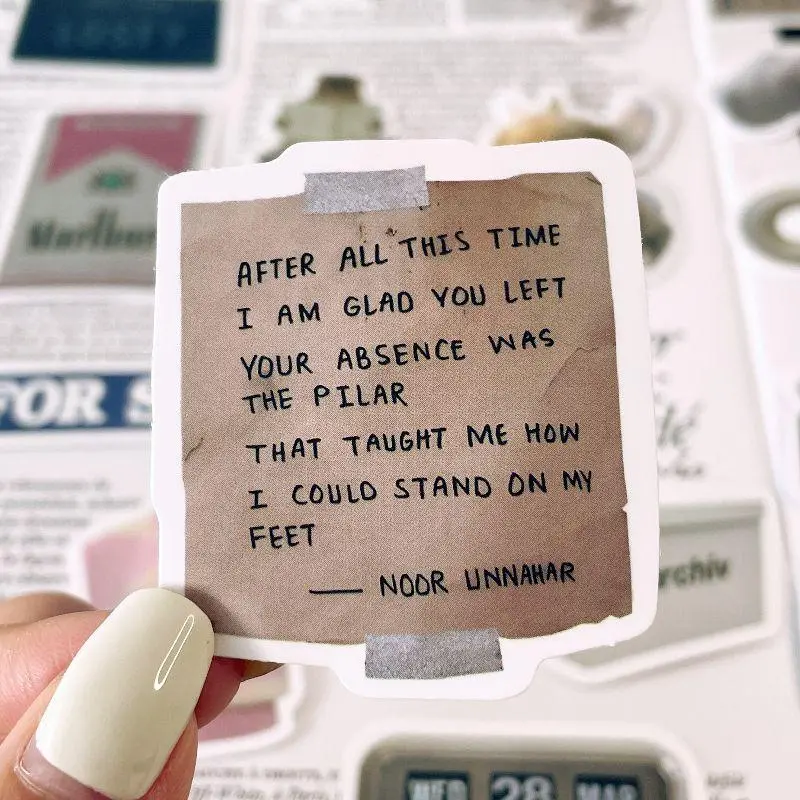 AFTER ALL THIS TIME
I AM GLAD YOU LEFT
YOUR ABSENCE WAS
THE PILAR
THAT TAUGHT ME HOW
I COULD STAND ON MY
FEET
— NOOR UNNAHAR
Marlboro
FOR S
rchiv
WED 28 MAR